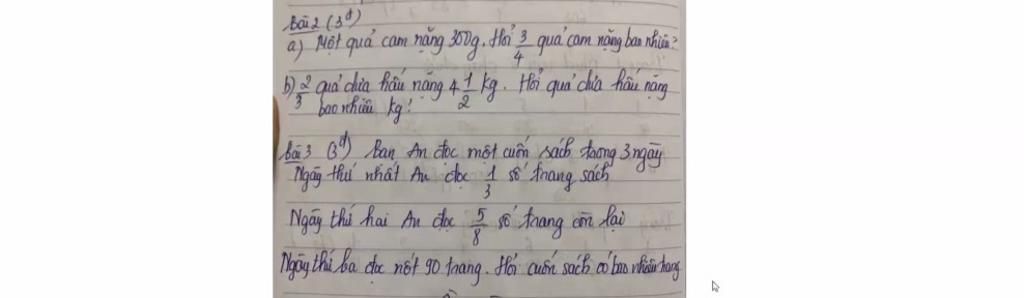 Bài 2 (3đ)
a) Một quả cam nặng 300g. Hỏi 3/4 quả cam nặng bao nhiêu?
b) 2/3 quả dưa hấu nặng 4 1/2 kg. Hỏi quả dưa hấu nặng
bao nhiêu kg?
Bài 3 (3đ) Bạn An đọc một cuốn sách trong 3 ngày
Ngày thứ nhất An đọc 1/3 số trang sách
Ngày thứ hai An đọc 5/8 số trang còn lại
Ngày thứ ba đọc nốt 90 trang. Hỏi cuốn sách có bao nhiêu trang